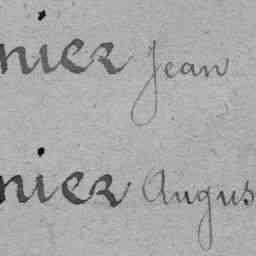 nier Jean
nier Augus